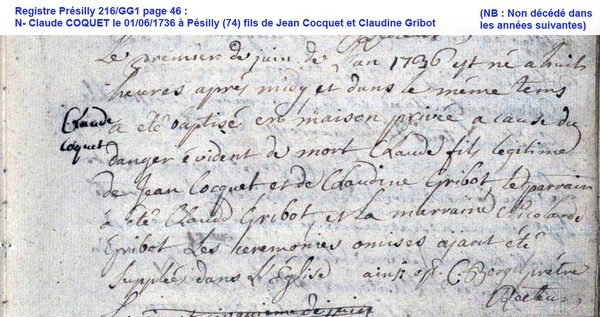 Registre Présilly 216/GG1 page 46 :
N- Claude COQUET le 01/06/1736 à Pésilly (74) fils de Jean Cocquet et Claudine Gribot
(NB : Non décédé dans
les années suivantes)
Le premier de juin de l'an 1736 est né a huit
heures apres midy et dans le même tems
Claude
Coquet
a été baptisé en maison privée a cause du
danger évident de mort Claude fils legitime
de Jean Cocquet et de Claudine Gribot, le parrain
à été Claude Gribot et la marraine Nicolarde
Gribot Les ceremonies omises ajant été
supplées dans L'Église ainsi est. C. prêtre
Recteur